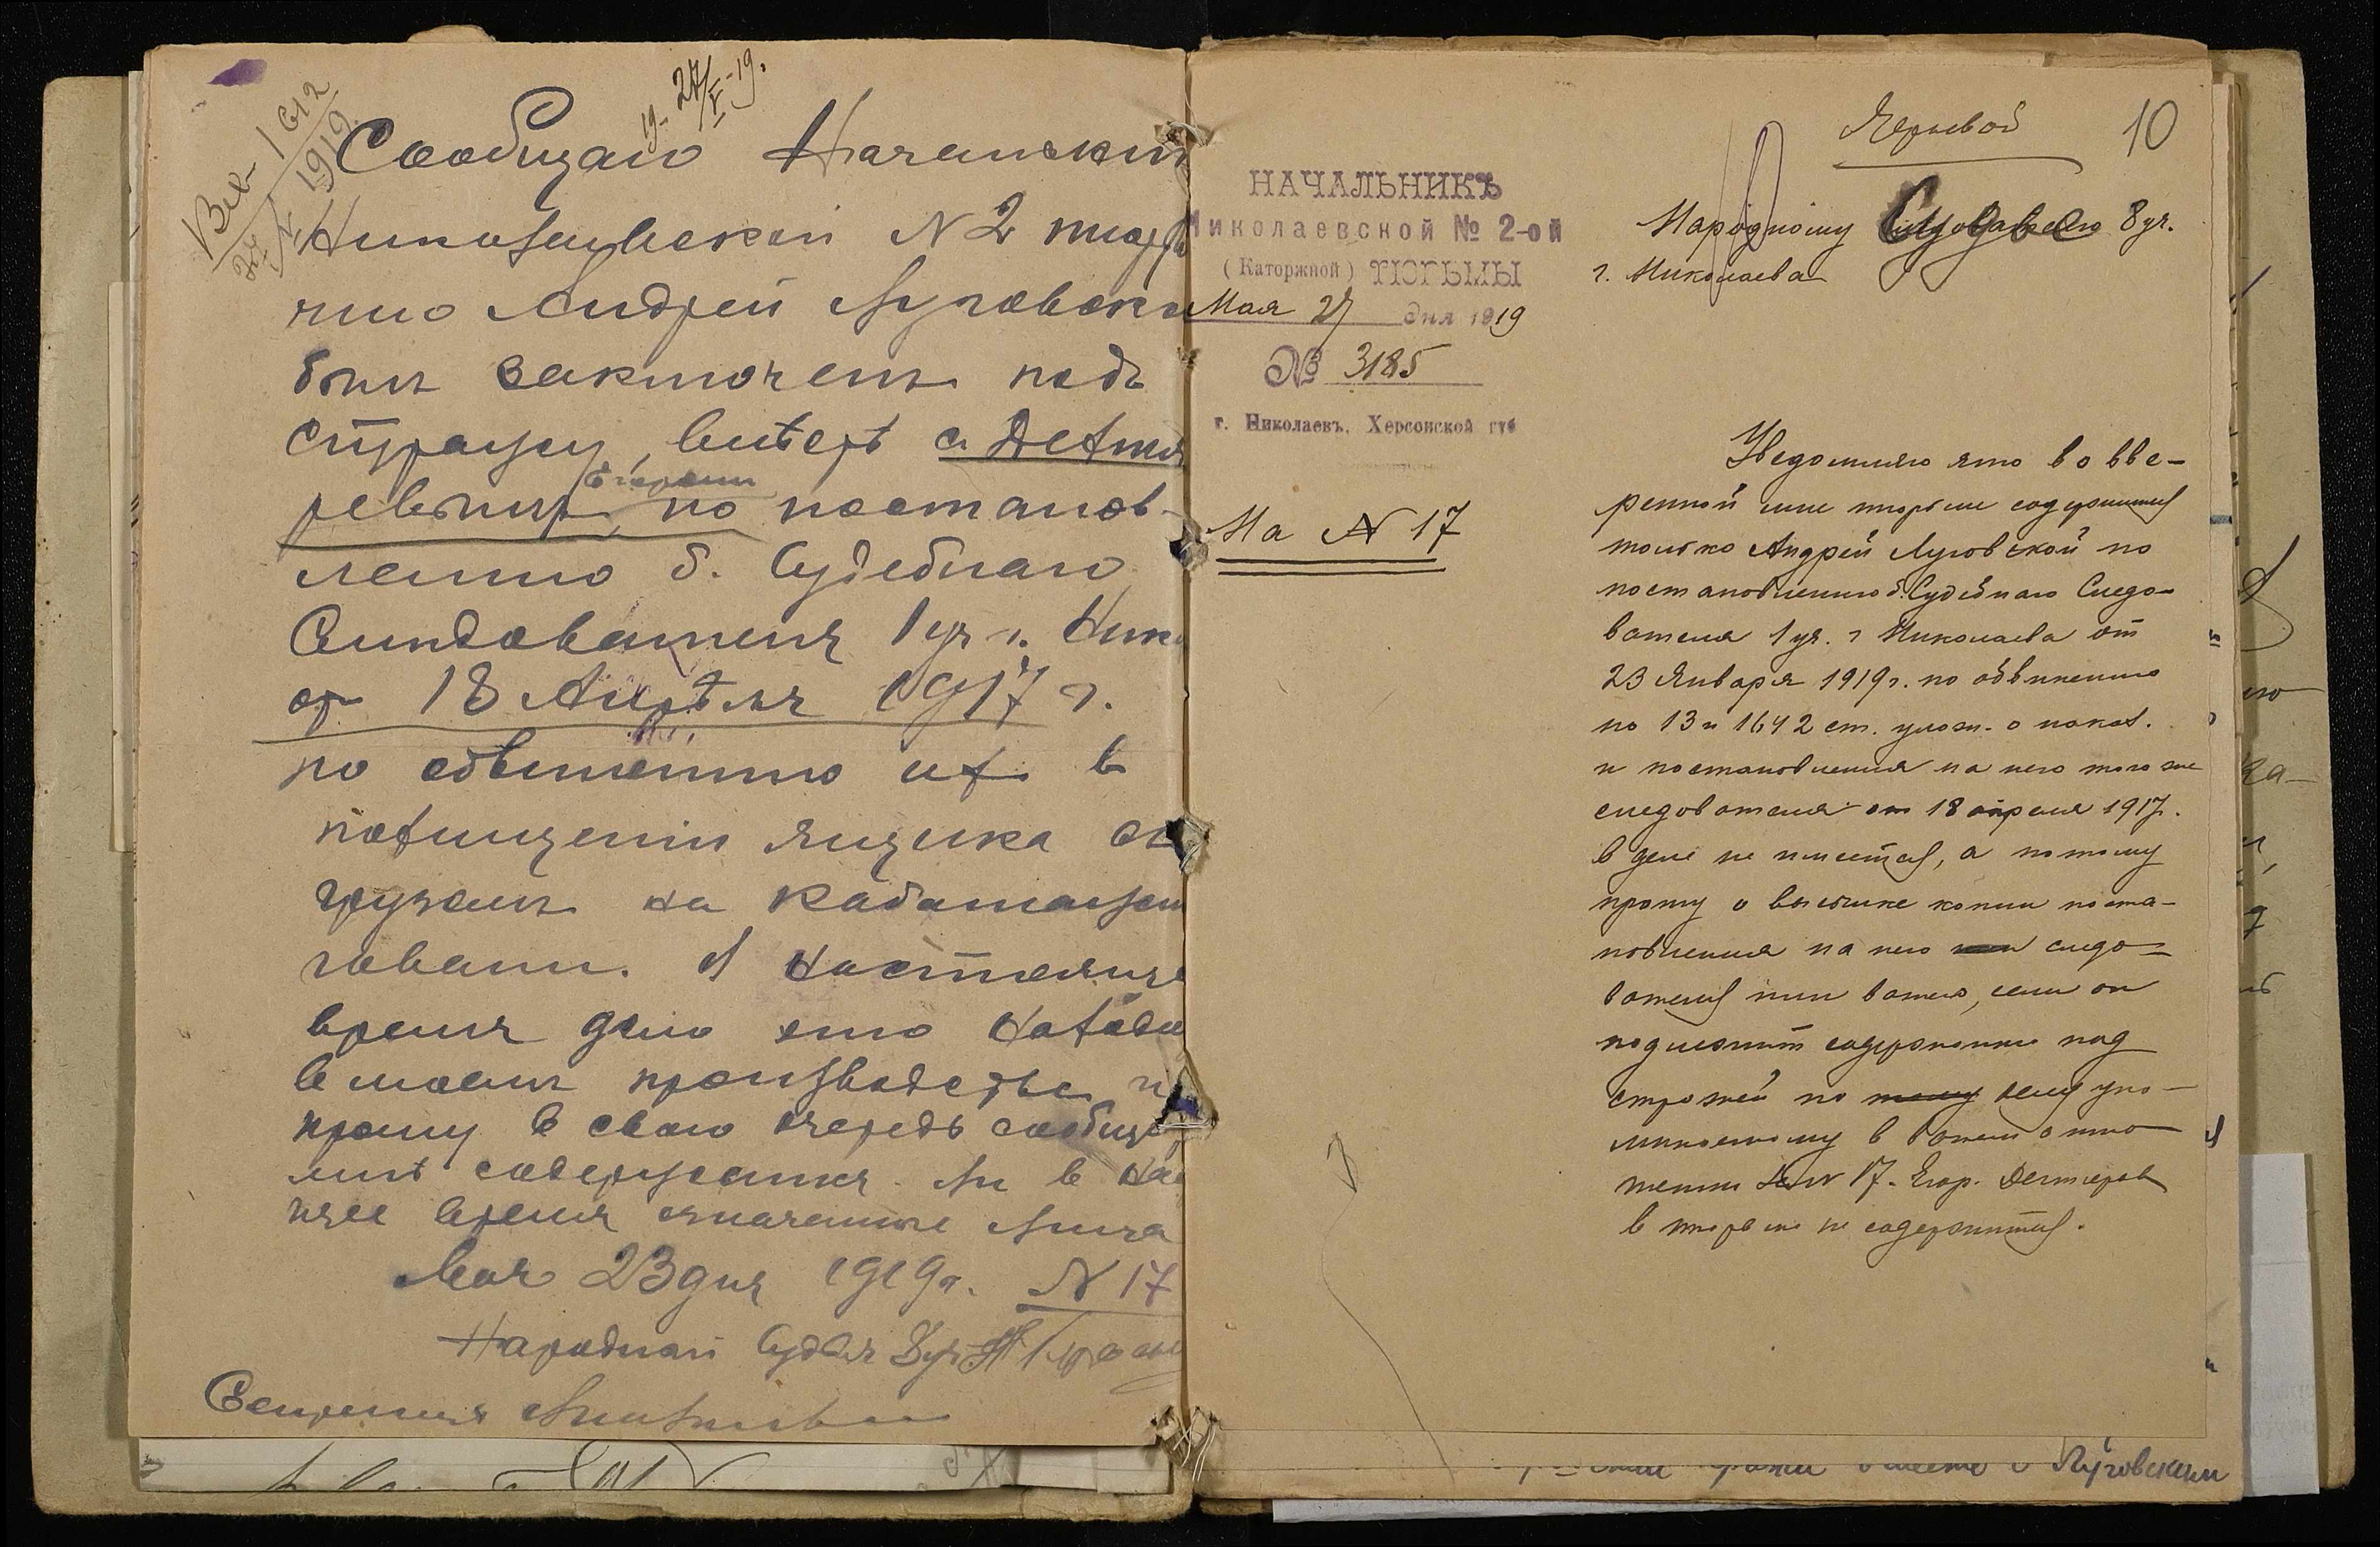 19- 27/V-19.
Вх- 1612
1919
Сообщаю Начальнику
Николаевской N 2 тюрь
что Андрей Луговско
был заключен подъ
стражу, вместе с Дехтя
ревымъ Егором по постанов-
лению б. Судебнаго
Следователя 1 уч г. Ник
от 18 Апреля 1917 г.
по обвинению их в
похищении ящика со
грузом на
. В настояще
время дело это находи
в моем производстве и
прошу в свою очередь сообщи
мне содержатся ли в нас
щее время означенные лица
Мая 23 дня 1919 г. N 17
Народный Судья 8 уч
Секретарь
10
НАЧАЛЬНИКЪ
Николаевской № 2-ой
(Каторжной) ТЮРЬМЫ
Мая 27 дня 1919
№ 3185
г. Николаевъ, Херсонской губ
На N 17
Народному Судье 8 уч.
г. Николаева
Уведомляю что во вве-
ренной мне тюрьме содержится
только Андрей Луговской по
постановлению б. Судебнаго Следо-
вателя 1 уч. г Николаева от
23 Января 1919 г. по обвинению
по 13 и 1642 ст. улож. о наказ.
и постановления на него того же
следователя от 18 апреля 1917.
в деле не имеется, а потому
прошу о высылке копии поста-
новления на него следо-
вателя или вашего, если он
подлежит содержанию под
стражей по делу упо-
минаемому в вашем отно
шении за N 17. Егор. Дехтерев
в тюрьме не содержится.
вместе с Луговским